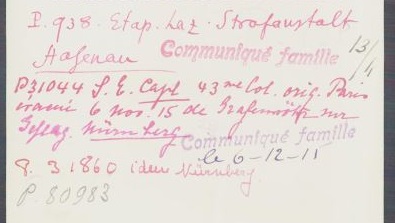 P. 938. Etap. Laz. Strafanstalt
Hagenau Communiqué famille 13/4
P31044 S. E. Capl 43me Col. orig. Paris
6 nov. 15 de Grafenwöhr sur
GefLag. Nürnberg Communiqué famille
le 6-12-11
8. 3 1860 idem Nürnberg.
P. 80983